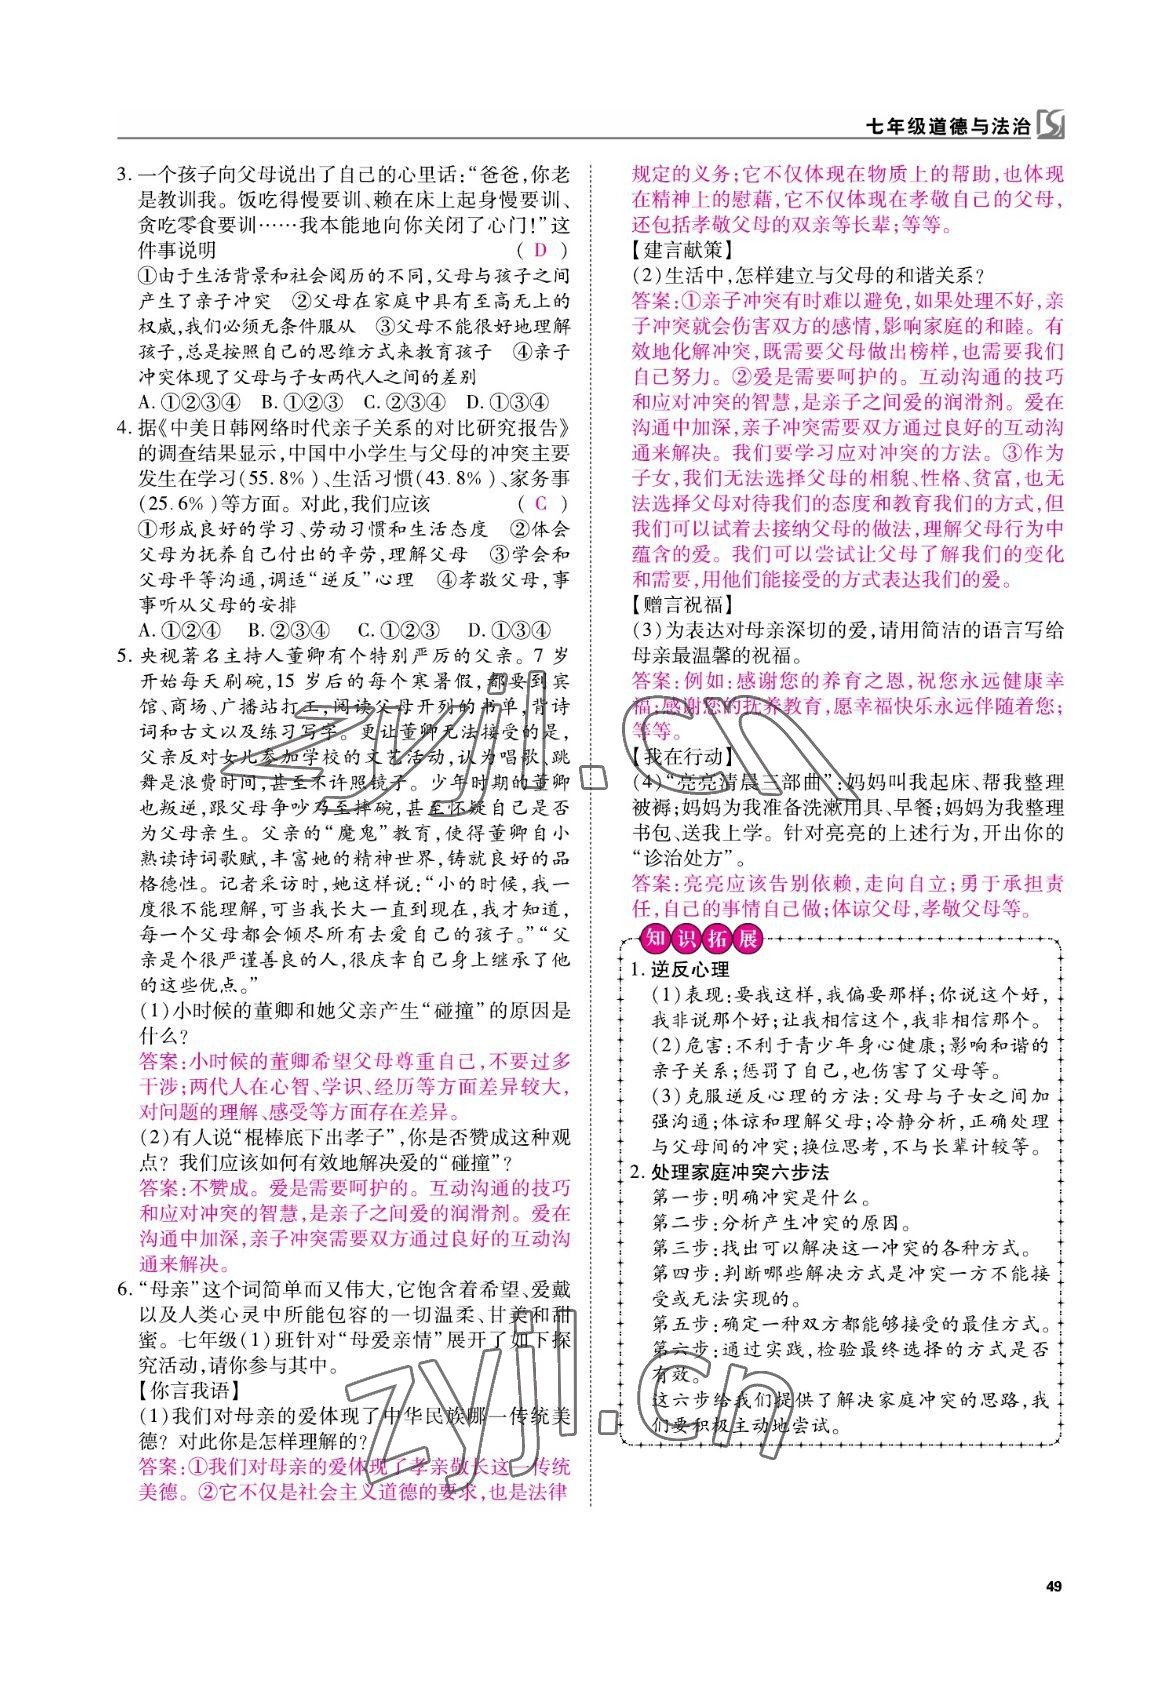 七年级道德与法治
3. 一个孩子向父母说出了自己的心里话:“爸爸,你老
是教训我。饭吃得慢要训、赖在床上起身慢要训、
贪吃零食要训……我本能地向你关闭了心门!”这
件事说明 ( D )
①由于生活背景和社会阅历的不同,父母与孩子之间
产生了亲子冲突 ②父母在家庭中具有至高无上的
权威,我们必须无条件服从 ③父母不能很好地理解
孩子,总是按照自己的思维方式来教育孩子 ④亲子
冲突体现了父母与子女两代人之间的差别
A. ①②③④ B. ①②③ C. ②③④ D. ①③④
4. 据《中美日韩网络时代亲子关系的对比研究报告》
的调查结果显示,中国中小学生与父母的冲突主要
发生在学习(55.8%)、生活习惯(43.8%)、家务事
(25.6%)等方面。对此,我们应该 ( C )
①形成良好的学习、劳动习惯和生活态度 ②体会
父母为抚养自己付出的辛劳,理解父母 ③学会和
父母平等沟通,调适“逆反”心理 ④孝敬父母,事
事听从父母的安排
A. ①②④ B. ②③④ C. ①②③ D. ①③④
5. 央视著名主持人董卿有个特别严厉的父亲。7 岁
开始每天刷碗,15 岁后的每个寒暑假,都要到宾
馆、商场、广播站打工;阅读父母开列的书单,背诗
词和古文以及练习写字。更让董卿无法接受的是,
父亲反对女儿参加学校的文艺活动,认为唱歌、跳
舞是浪费时间,甚至不许照镜子。少年时期的董卿
也叛逆,跟父母争吵乃至摔碗,甚至怀疑自己是否
为父母亲生。父亲的“魔鬼”教育,使得董卿自小
熟读诗词歌赋,丰富她的精神世界,铸就良好的品
格德性。记者采访时,她这样说:“小的时候,我一
度很不能理解,可当我长大一直到现在,我才知道,
每一个父母都会倾尽所有去爱自己的孩子。”“父
亲是个很严谨善良的人,很庆幸自己身上继承了他
的这些优点。”
(1)小时候的董卿和她父亲产生“碰撞”的原因是
什么?
答案:小时候的董卿希望父母尊重自己,不要过多
干涉;两代人在心智、学识、经历等方面差异较大,
对问题的理解、感受等方面存在差异。
(2)有人说“棍棒底下出孝子”,你是否赞成这种观
点? 我们应该如何有效地解决爱的“碰撞”?
答案:不赞成。爱是需要呵护的。互动沟通的技巧
和应对冲突的智慧,是亲子之间爱的润滑剂。爱在
沟通中加深,亲子冲突需要双方通过良好的互动沟
通来解决。
6. “母亲”这个词简单而又伟大,它饱含着希望、爱戴
以及人类心灵中所能包容的一切温柔、甘美和甜
蜜。七年级(1)班针对“母爱亲情”展开了如下探
究活动,请你参与其中。
【你言我语】
(1)我们对母亲的爱体现了中华民族哪一传统美
德? 对此你是怎样理解的?
答案:①我们对母亲的爱体现了孝亲敬长这一传统
美德。②它不仅是社会主义道德的要求,也是法律
规定的义务;它不仅体现在物质上的帮助,也体现
在精神上的慰藉,它不仅体现在孝敬自己的父母,
还包括孝敬父母的双亲等长辈;等等。
【建言献策】
(2)生活中,怎样建立与父母的和谐关系?
答案:①亲子冲突有时难以避免,如果处理不好,亲
子冲突就会伤害双方的感情,影响家庭的和睦。有
效地化解冲突,既需要父母做出榜样,也需要我们
自己努力。②爱是需要呵护的。互动沟通的技巧
和应对冲突的智慧,是亲子之间爱的润滑剂。爱在
沟通中加深,亲子冲突需要双方通过良好的互动沟
通来解决。我们要学习应对冲突的方法。③作为
子女,我们无法选择父母的相貌、性格、贫富,也无
法选择父母对待我们的态度和教育我们的方式,但
我们可以试着去接纳父母的做法,理解父母行为中
蕴含的爱。我们可以尝试让父母了解我们的变化
和需要,用他们能接受的方式表达我们的爱。
【赠言祝福】
(3)为表达对母亲深切的爱,请用简洁的语言写给
母亲最温馨的祝福。
答案:例如:感谢您的养育之恩,祝您永远健康幸
福;感谢您的抚养教育,愿幸福快乐永远伴随着您;
等等。
【我在行动】
(4)“亮亮清晨三部曲”:妈妈叫我起床、帮我整理
被褥;妈妈为我准备洗漱用具、早餐;妈妈为我整理
书包、送我上学。针对亮亮的上述行为,开出你的
“诊治处方”。
答案:亮亮应该告别依赖,走向自立;勇于承担责
任,自己的事情自己做;体谅父母,孝敬父母等。
知识拓展
1. 逆反心理
(1)表现:要我这样,我偏要那样;你说这个好,
我非说那个好;让我相信这个,我非相信那个。
(2)危害:不利于青少年身心健康;影响和谐的
亲子关系;惩罚了自己,也伤害了父母等。
(3)克服逆反心理的方法:父母与子女之间加
强沟通;体谅和理解父母;冷静分析,正确处理
与父母间的冲突;换位思考,不与长辈计较等。
2. 处理家庭冲突六步法
第一步:明确冲突是什么。
第二步:分析产生冲突的原因。
第三步:找出可以解决这一冲突的各种方式。
第四步:判断哪些解决方式是冲突一方不能接
受或无法实现的。
第五步:确定一种双方都能够接受的最佳方式。
第六步:通过实践,检验最终选择的方式是否
有效。
这六步给我们提供了解决家庭冲突的思路,我
们要积极主动地尝试。
zyjl.cn
zyjl.cn
49